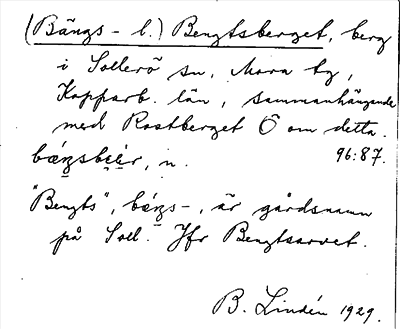 (Bängs- l.) Bengtsberget, berg
i Sollerö sn, Mora tg,
Kopparb. län, sammanhängande
med Rostberget Ö om detta.
96:87.
"Bengts", är gårdsnamn
på Soll. Jfr Bengtsarvet.
B. Lindén 1929.